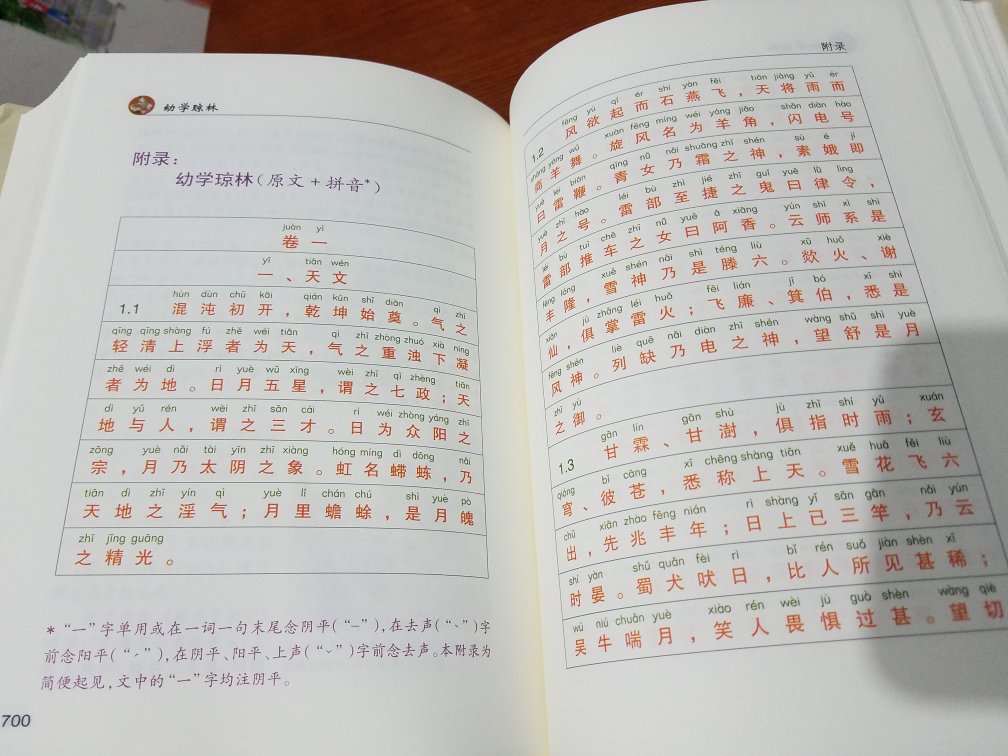 幼学琼林
附录：
幼学琼林(原文+拼音*)
juàn yī
卷 一
yī tiān wén
一、天文
hùn dùn chū kāi qián kūn shǐ diàn qì zhī
1.1 混沌初开，乾坤始奠。气之
qīng qīng shàng fú zhě wéi tiān qì zhī zhòng zhuó xià níng
轻清上浮者为天，气之重浊下凝
zhě wéi dì rì yuè wǔ xīng wèi zhī qī zhèng tiān
者为地。日月五星，谓之七政；天
dì yǔ rén wèi zhī sān cái rì wéi zhòng yáng zhī
地与人，谓之三才。日为众阳之
zōng yuè nǎi tài yīn zhī xiàng hóng míng dì dōng nǎi
宗，月乃太阴之象。虹名䗖蝀，乃
tiān dì zhī yín qì yuè lǐ chán chú shì yuè pò
天地之淫气；月里蟾蜍，是月魄
zhī jīng guāng
之精光。
*“一”字单用或在一词一句末尾念阴平(“ˉ”)，在去声(“ˋ”)字
前念阳平(“ˊ”)，在阴平、阳平、上声(“ˇ”)字前念去声。本附录为
简便起见，文中的“一”字均注阴平。
700
附录
fēng yù qǐ ér shí yàn fēi tiān jiāng yǔ ér
1.2 风欲起而石燕飞，天将雨而
shāng yáng wǔ xuàn fēng míng wéi yáng jiǎo shǎn diàn hào
商羊舞。旋风名为羊角，闪电号
yuē léi biān qīng nǚ nǎi shuāng zhī shén sù é jí
曰雷鞭。青女乃霜之神，素娥即
yuè zhī hào léi bù zhì jié zhī guǐ yuē lǜ lìng
月之号。雷部至捷之鬼曰律令，
léi bù tuī chē zhī nǚ yuē ā xiāng yún shī xì shì
雷部推车之女曰阿香。云师系是
fēng lóng xuě shén nǎi shì téng liù xū huǒ xiè
丰隆，雪神乃是滕六。欻火、谢
xiān jù zhǎng léi huǒ fēi lián jī bó xī shì
仙，俱掌雷火；飞廉、箕伯，悉是
fēng shén liè quē nǎi diàn zhī shén wàng shū shì yuè
风神。列缺乃电之神，望舒是月
zhī yù
之御。
gān lín gān shù jù zhǐ shí yǔ xuán
1.3 甘霖、甘澍，俱指时雨；玄
qióng bǐ cāng xī chēng shàng tiān xuě huā fēi liù
穹、彼苍，悉称上天。雪花飞六
chū xiān zhào fēng nián rì shàng yǐ sān gān nǎi yún
出，先兆丰年；日上已三竿，乃云
shí yàn shǔ quǎn fèi rì bǐ rén suǒ jiàn shèn xī
时晏。蜀犬吠日，比人所见甚稀；
wú niú chuǎn yuè xiào rén wèi jù guò shèn wàng qiè
吴牛喘月，笑人畏惧过甚。望切